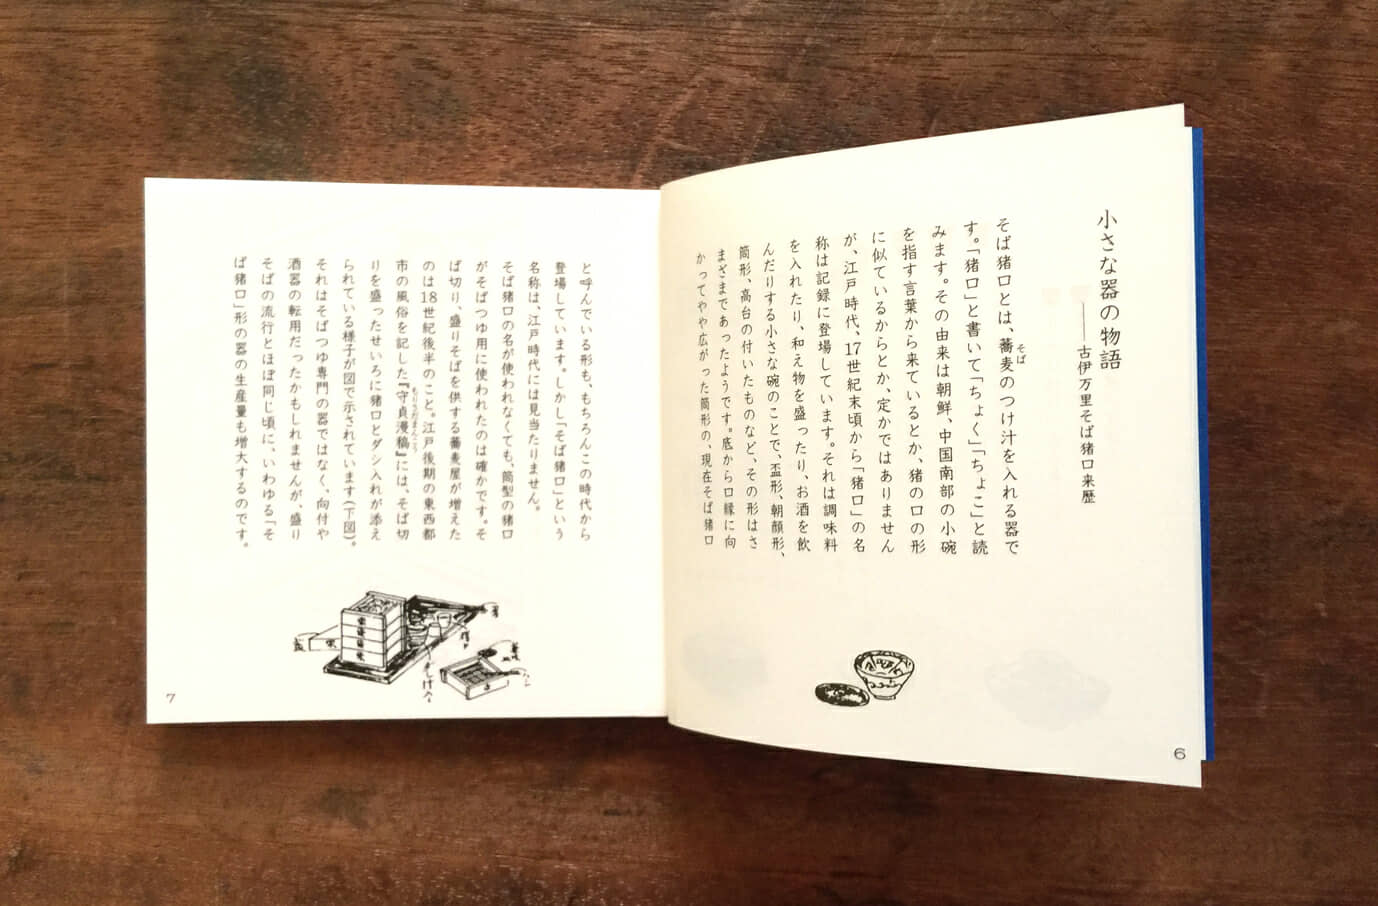 小さな器の物語
――古伊万里そば猪口来歴
そば猪口とは、蕎麦のつけ汁を入れる器で
そば
す。「猪口」と書いて「ちょく」「ちょこ」と読
みます。その由来は朝鮮、中国南部の小碗
を指す言葉から来ているとか、猪の口の形
に似ているからとか、定かではありません
が、江戸時代、17世紀末頃から「猪口」の名
称は記録に登場しています。それは調味料
を入れたり、和え物を盛ったり、お酒を飲
んだりする小さな碗のことで、盃形、朝顔形、
筒形、高台の付いたものなど、その形はさ
まざまであったようです。底から口縁に向
かってやや広がった筒形の、現在そば猪口
6
と呼んでいる形も、もちろんこの時代から
登場しています。しかし「そば猪口」という
名称は、江戸時代には見当たりません。
そば猪口の名が使われなくても、筒型の猪口
がそばつゆ用に使われたのは確かです。そ
ば切り、盛りそばを供する蕎麦屋が増えた
のは18世紀後半のこと。江戸後期の東西都
市の風俗を記した『守貞漫稿』には、そば切
もりさだまんこう
りを盛ったせいろに猪口とダシ入れが添え
られている様子が図で示されています(下図)。
それはそばつゆ専門の器ではなく、向付や
酒器の転用だったかもしれませんが、盛り
そばの流行とほぼ同じ頃に、いわゆる「そ
ば猪口」形の器の生産量も増大するのです。
7